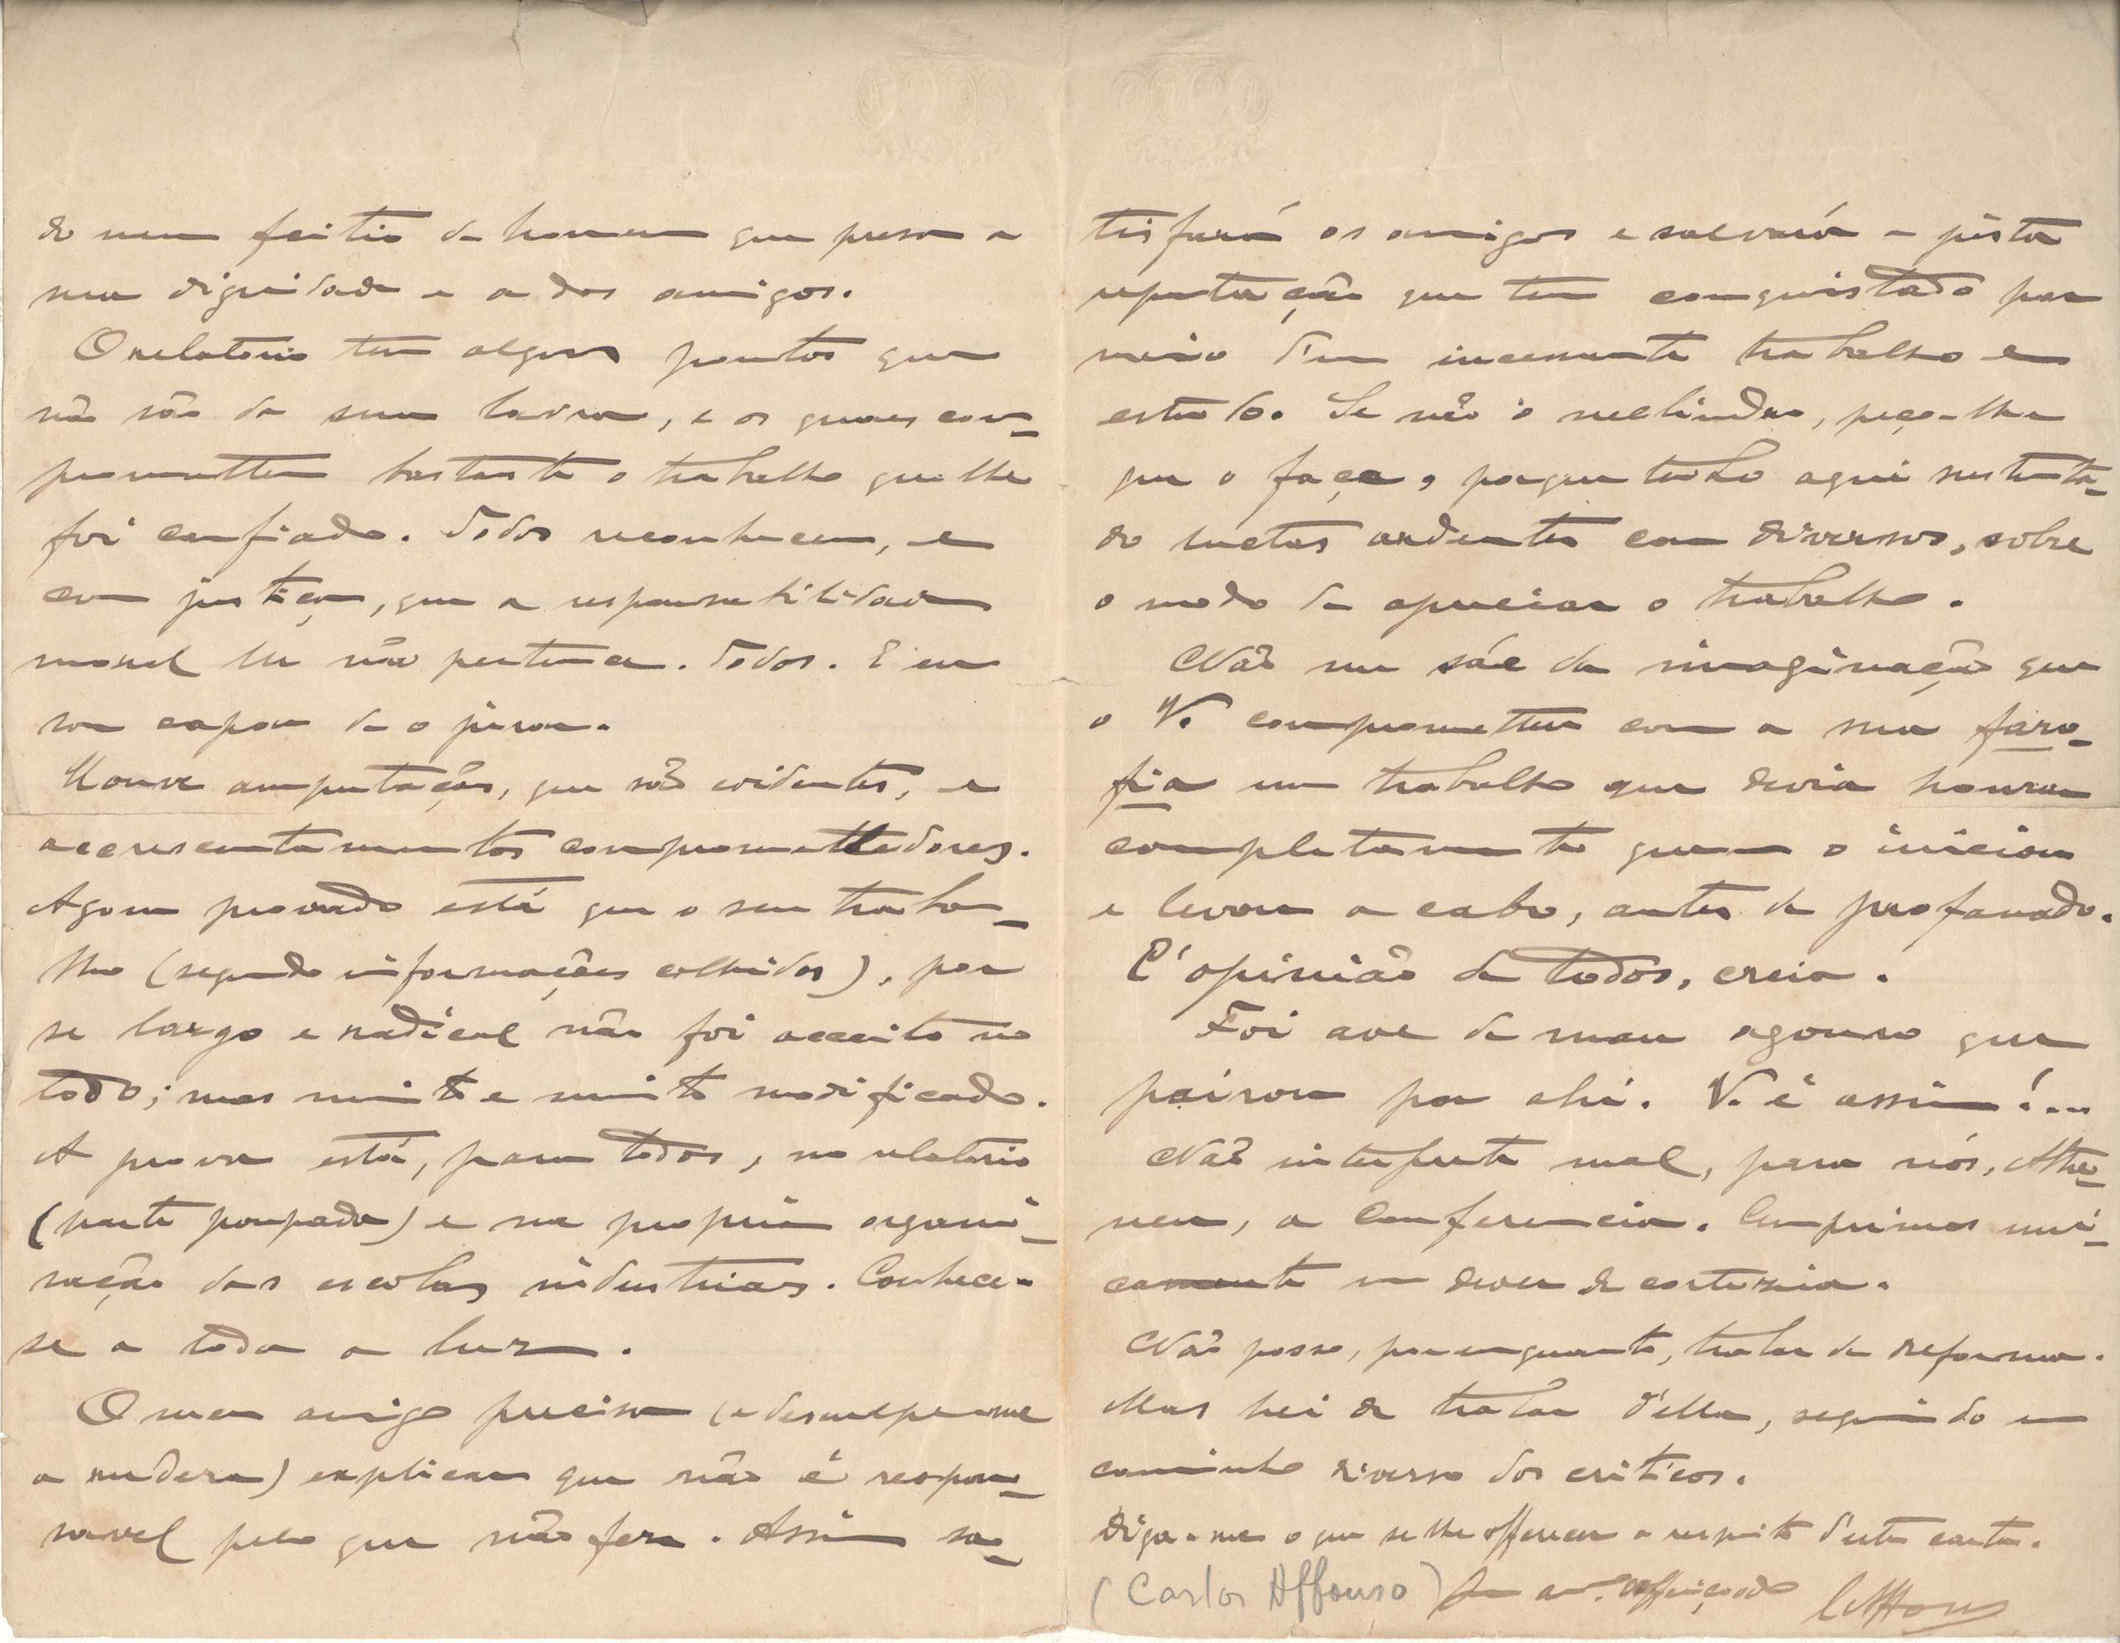 do meu feitio de homem que presa a
sua dignidade e a dos amigos.
O relatorio tem alguns pontos que
não são da sua lavra, e os quaes com-
promettem bastante o trabalho que lhe
foi confiado. Todos reconhecem, e
com justiça, que a responsabilidade
moral lhe não pertence. Todos. E eu
sou capaz de o jurar.
Houve amputações, que são evidentes, e
accrescentamentos compromettedores.
Agora provado está que o seu traba-
lho (segundo informações colhidas), por
ser largo e radical não foi acceito no
todo; mas muito e muito modificado.
A prova está, para todos, no relatorio
(parte poupada) e na propria organi-
sação das escolas industriaes. Conhece-
se a toda a luz.
O meu amigo precisa (e desculpe-me
a rudeza) explicar que não é respon-
savel pelo que não fez. Assim sa-
tisfará os amigos e salvará a justa
reputação que tem conquistado por
meio d'um incessante trabalho e
estudo. Se não o melindra, peço-lhe
que o faça, porque tenho aqui sustenta-
do luctas ardentes com diversos, sobre
o modo de apreciar o trabalho.
Não me sáe da imaginação que
o V. comprometteu com a sua faro-
fia um trabalho que devia honrar
completamente quem o iniciou
e levou a cabo, antes de profanado.
E' opinião de todos, creia.
Foi ave de mau agouro que
pairou por ahi. V. é assim!...
Não interprete mal, para nós, Athe-
neu, a Conferencia. Cumprimos uni-
camente um dever de cortezia.
Não posso, por enquanto, tratar da reforma.
Mas hei de tratar d'ella, seguindo um
caminho diverso dos criticos.
Diga-me o que se lhe offerecer a respeito d'esta carta.
(Carlos Affonso) Seu am.º affeiçoado CAffonso